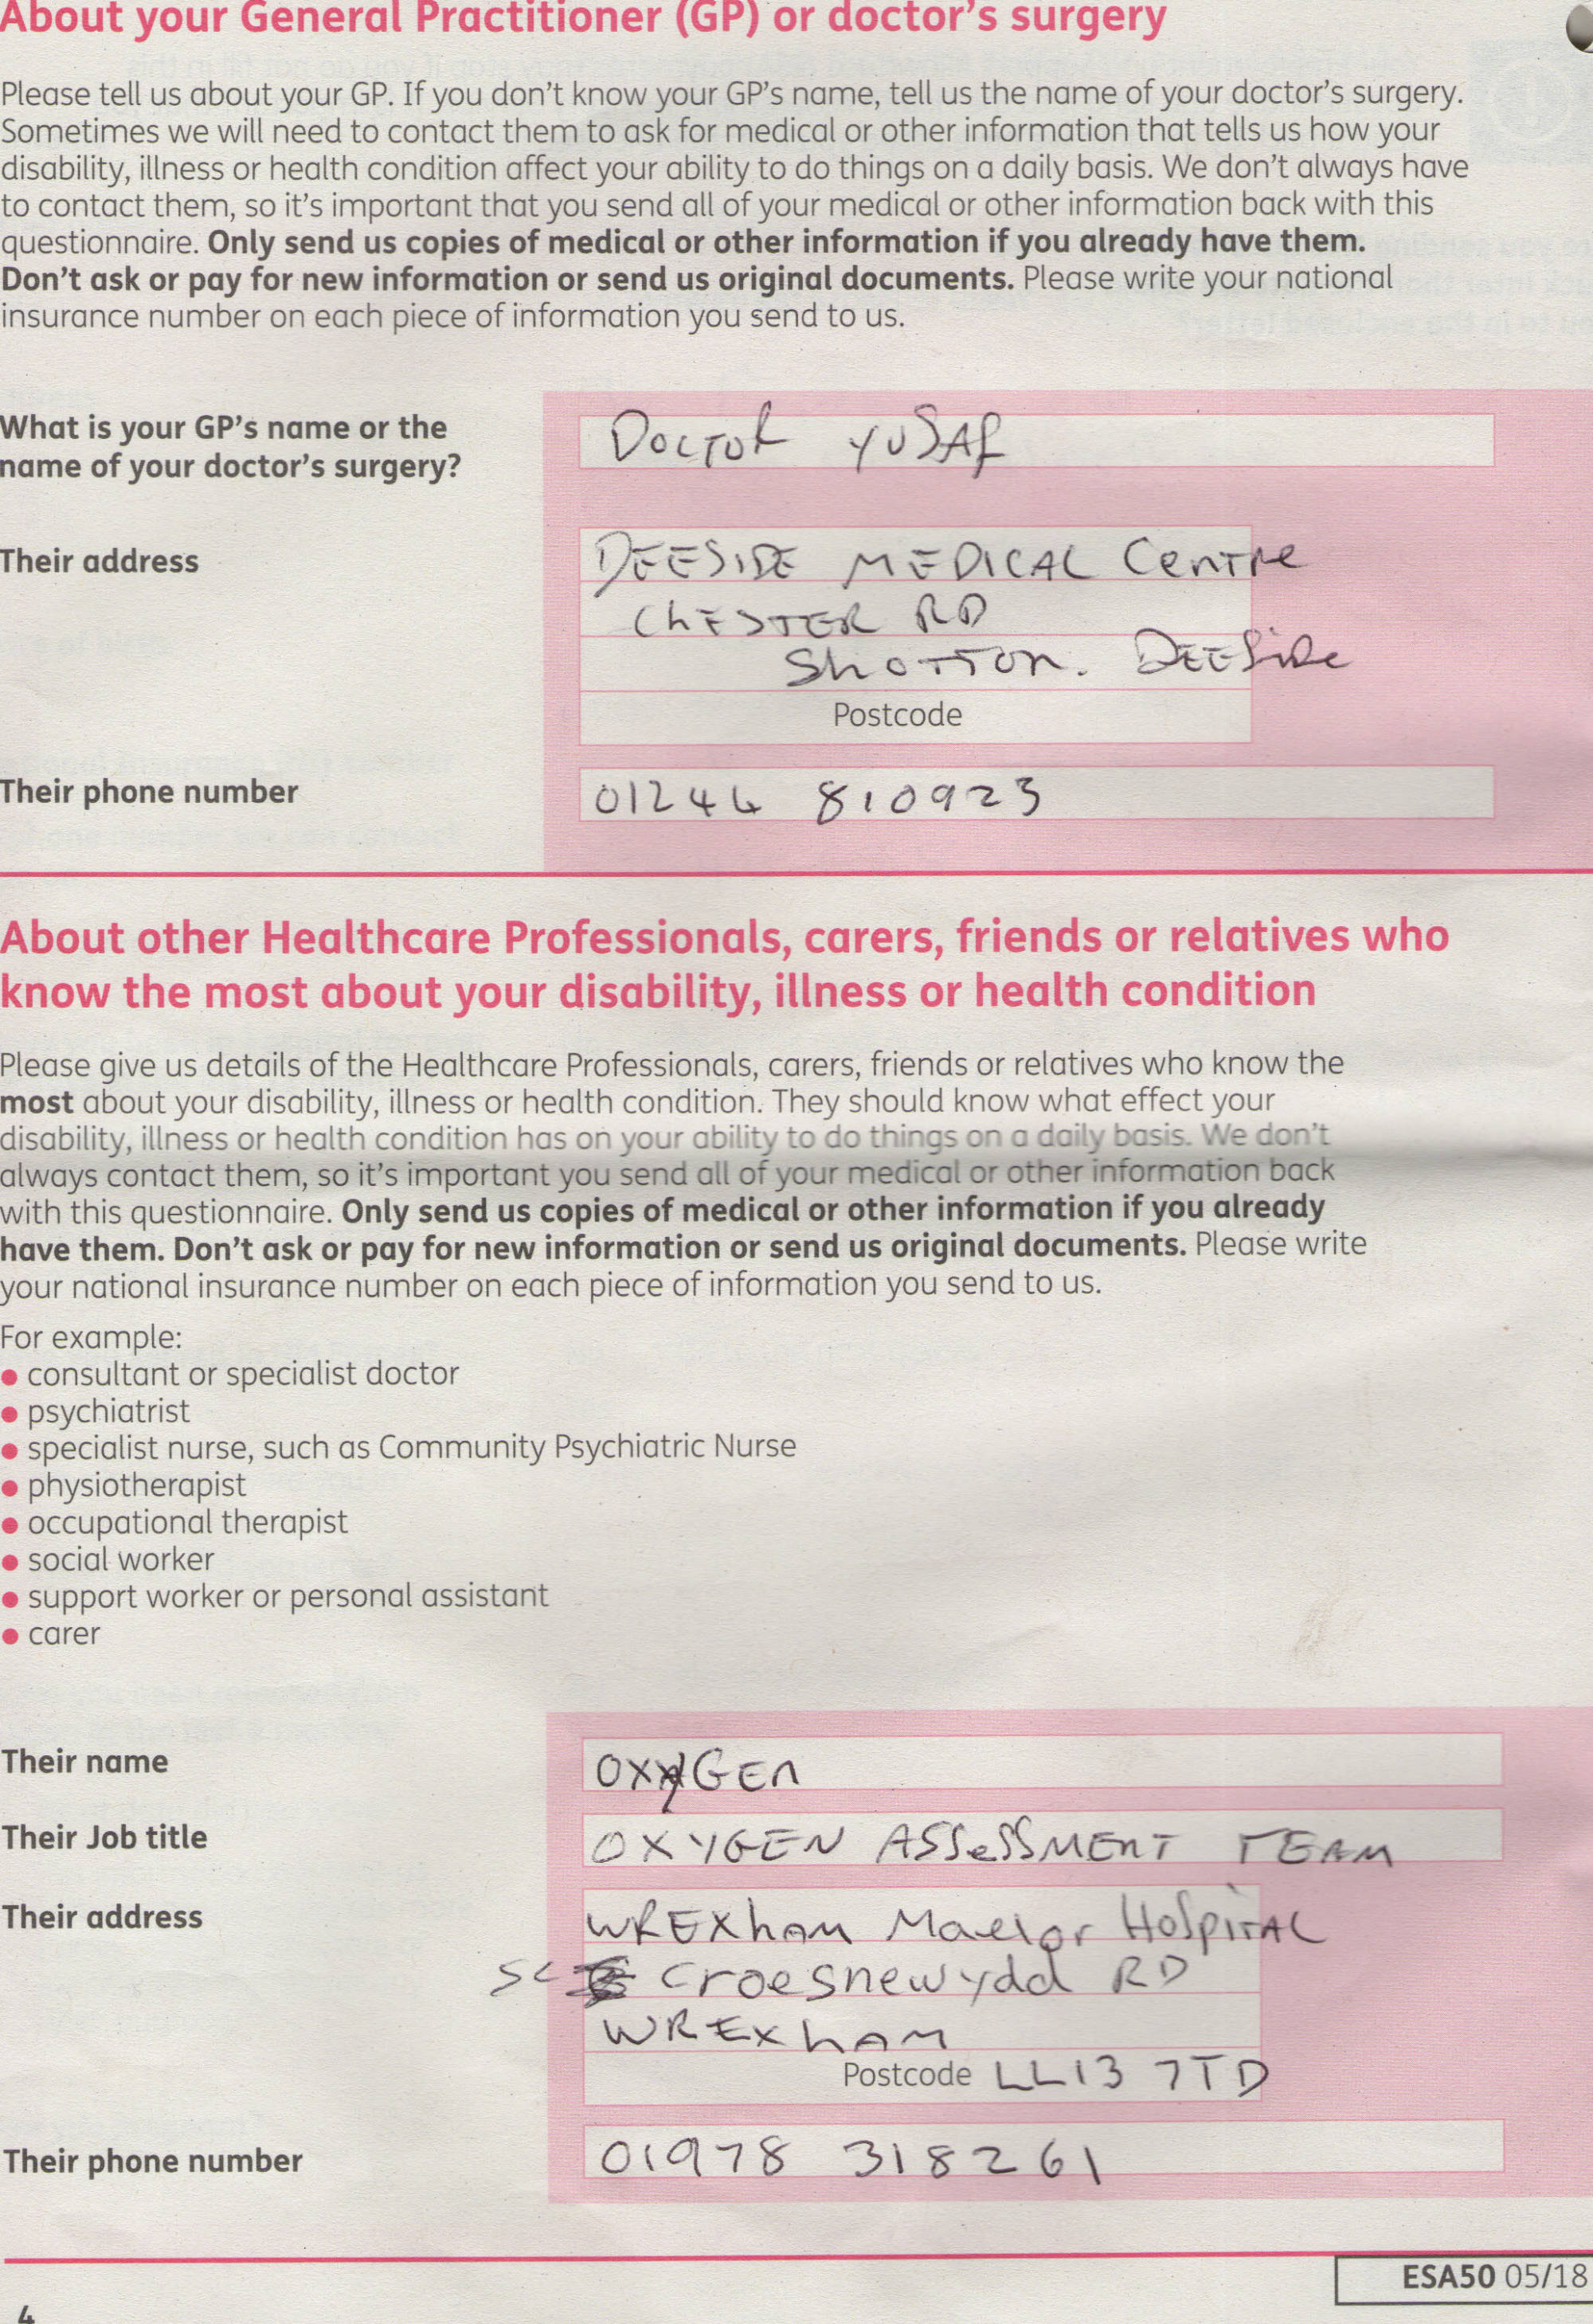 About your General Practitioner (GP) or doctor's surgery
Please tell us about your GP. If you don't know your GP's name, tell us the name of your doctor's surgery.
Sometimes we will need to contact them to ask for medical or other information that tells us how your
disability, illness or health condition affect your ability to do things on a daily basis. We don't always have
to contact them, so it's important that you send all of your medical or other information back with this
questionnaire. Only send us copies of medical or other information if you already have them.
Don't ask or pay for new information or send us original documents. Please write your national
insurance number on each piece of information you send to us.
What is your GP's name or the
name of your doctor's surgery?
DOCTOR YUSAF
Their address
DEESIDE MEDICAL CenTRe
ChESTER RD
ShOTTOn. DEESiDe
Postcode
Their phone number
01244 810923
About other Healthcare Professionals, carers, friends or relatives who
know the most about your disability, illness or health condition
Please give us details of the Healthcare Professionals, carers, friends or relatives who know the
most about your disability, illness or health condition. They should know what effect your
disability, illness or health condition has on your ability to do things on a daily basis. We don't
always contact them, so it's important you send all of your medical or other information back
with this questionnaire. Only send us copies of medical or other information if you already
have them. Don't ask or pay for new information or send us original documents. Please write
your national insurance number on each piece of information you send to us.
For example:
• consultant or specialist doctor
• psychiatrist
• specialist nurse, such as Community Psychiatric Nurse
• physiotherapist
• occupational therapist
• social worker
• support worker or personal assistant
• carer
Their name
OXYGEn
Their Job title
OXYGEN ASSeSSMEnT TEAM
Their address
WREXhAM Maelor HoSpiTAL
Croesnewydd RD
WREXhAM
Postcode LL13 7TD
Their phone number
01978 318261
ESA50 05/18
4